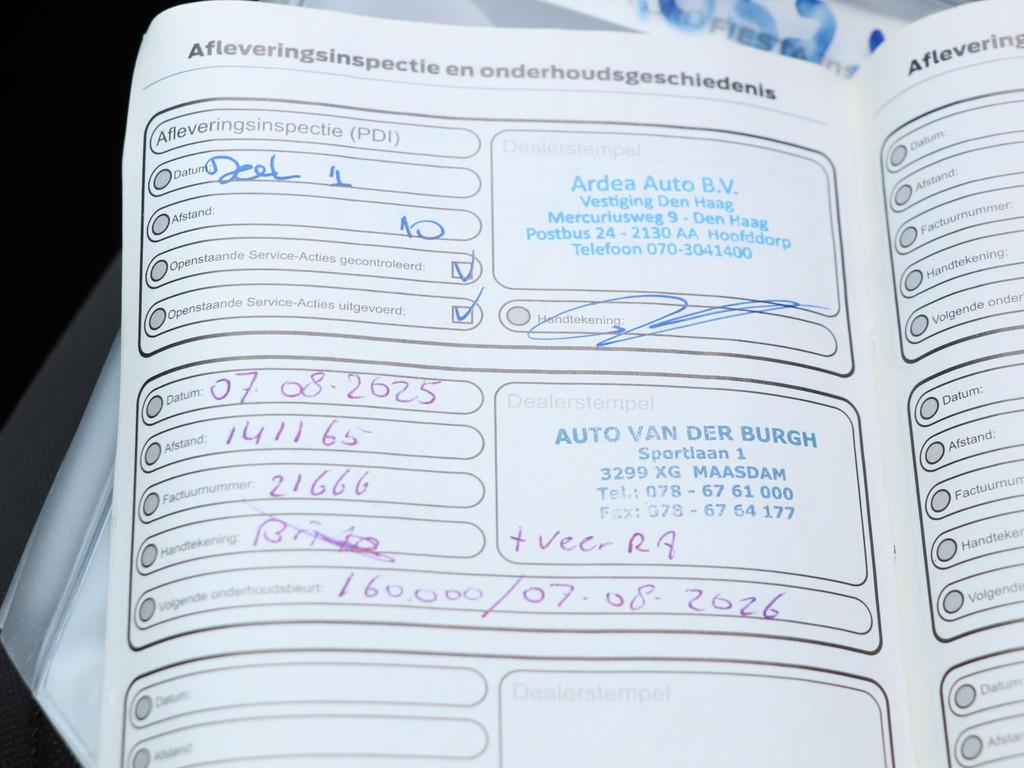 FIESTA
Afleveringsinspectie en onderhoudsgeschiedenis
Afleveringsinspectie (PDI)
Datum: Deel 1
Afstand: 10
Openstaande Service-Acties gecontroleerd:
Openstaande Service-Acties uitgevoerd:
Dealerstempel
Ardea Auto B.V.
Vestiging Den Haag
Mercuriusweg 9 - Den Haag
Postbus 24 - 2130 AA Hoofddorp
Telefoon 070-3041400
Handtekening:
Datum: 07-08-2025
Afstand: 141165
Factuurnummer: 21666
Handtekening:
Volgende onderhoudsbeurt: 160.000/07-08-2026
Dealerstempel
AUTO VAN DER BURGH
Sportlaan 1
3299 XG MAASDAM
Tel.: 078 - 67 61 000
Fax: 078 - 67 64 177
+ veer RA
Datum:
Afstand:
Dealerstempel
Aflevering
Datum:
Afstand:
Factuurnummer:
Handtekening:
Volgende onder
Datum:
Afstand:
Factuurnum
Handteken
Volgende
Datum
Afsta